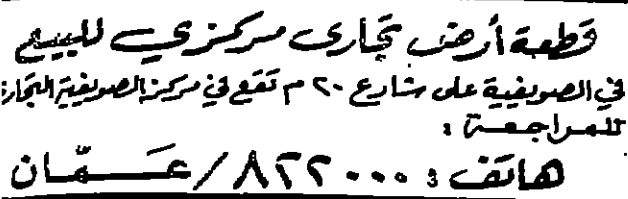 قطعة أرض تجاري مركزي للبيع
في الصويفية على شارع ٢٠ م تقع في مركز الصويفية التجاري
للمراجعة :
هاتف : ٨٢٢٠٠٠ / عمّان